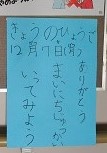 きょうのひょうで
12月7日(第)
ありがとう
まいいちらっか
いってみよう